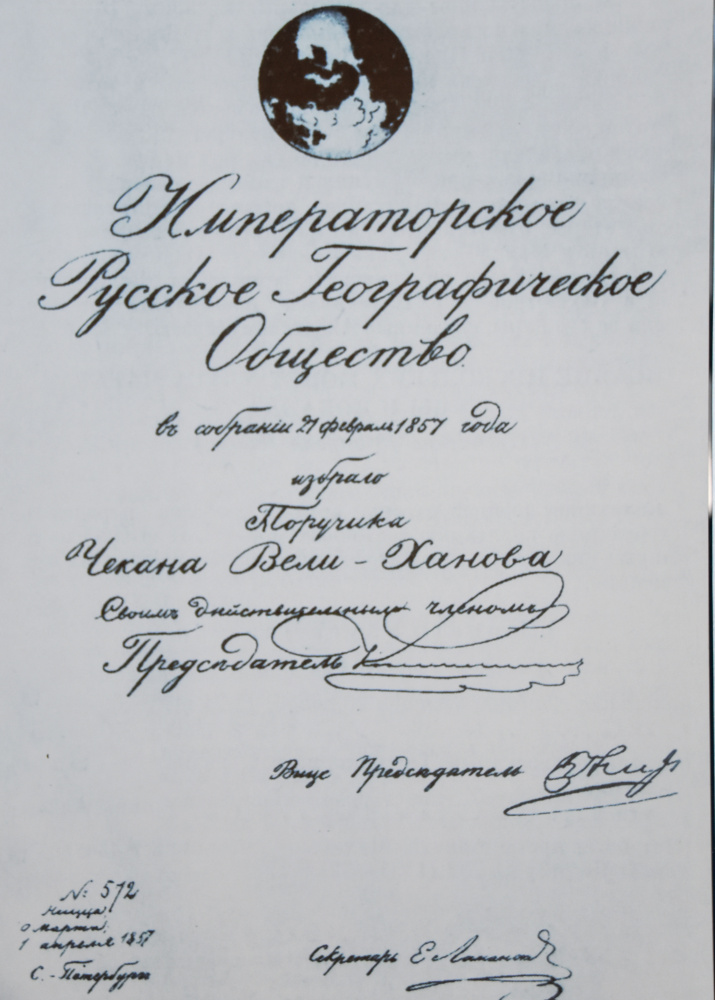 Императорское
Русское Географическое
Общество
въ собранiи 21 февраля 1857 года
избрало
Поручика
Чекана Вели-Ханова
Своимъ действительнымъ членомъ
Председатель
Вице Председатель
№: 572
Ницца
марта
1 апреля 1857
С.-Петербургъ
Секретарь Е.